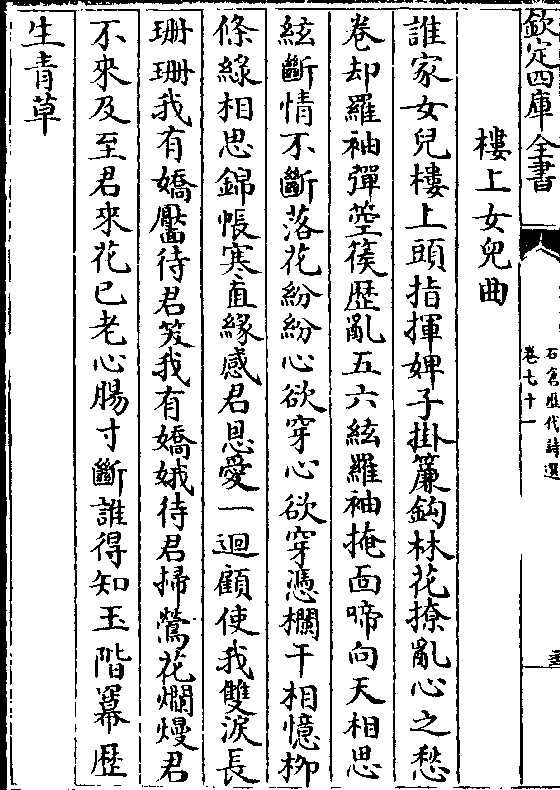 欽定四庫全書
石倉歴代詩選
卷七十一
樓上女兒曲
誰家女兒樓上頭指揮婢子掛簾鈎林花撩亂心之愁
卷却羅袖彈箜篌歴亂五六絃羅袖掩面啼向天相思
絃斷情不斷落花紛紛心欲穿心欲穿憑欄干相憶柳
條緑相思錦帳寒直緣感君恩愛一迴顧使我雙淚長
珊珊我有嬌靨待君笑我有嬌娥待君掃鶯花爛熳君
不來及至君來花已老心腸寸斷誰得知玉階羃歴
生青草